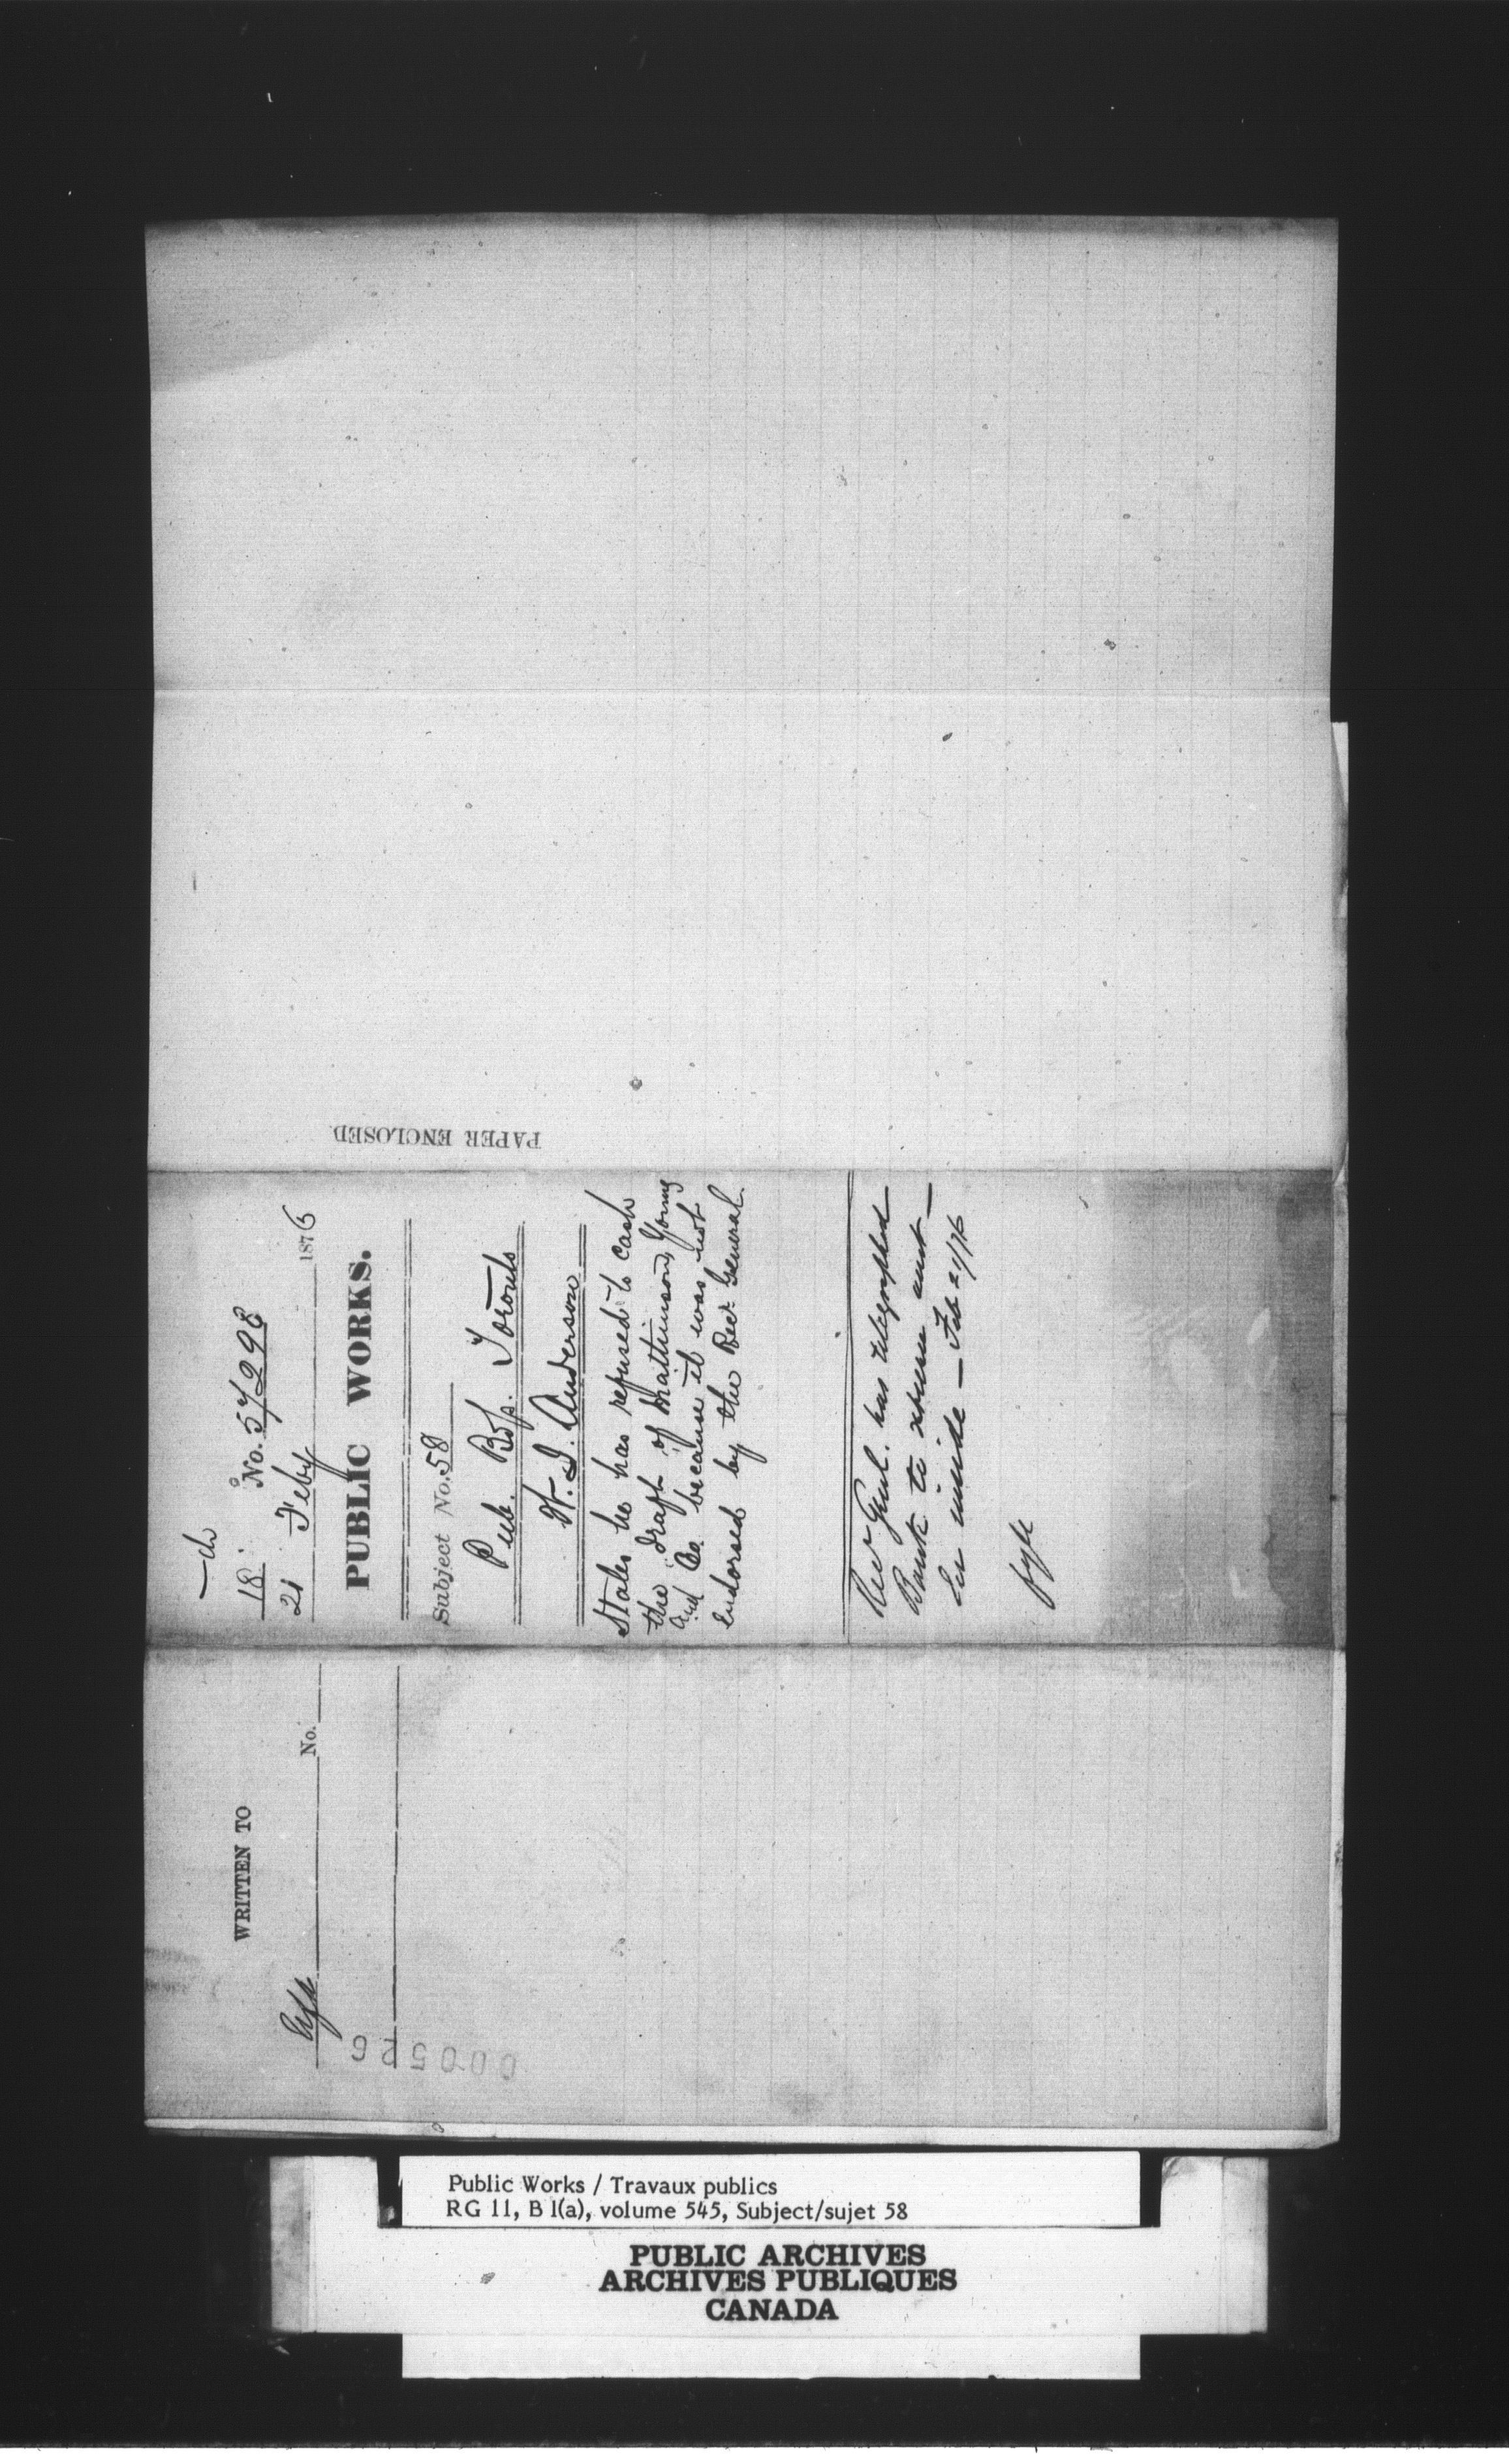 18. No. 57298
21 Feby 1876
PUBLIC WORKS.
Subject No. 58
Pub. Bdgs. Toronto
W. J. Anderson
States he has refused to cash
the draft of Mattinson, Young
and Co. because it was not
endorsed by the Recr. General.
Recr Genl. has telegraphed
Bank to
See inside — Feb 21/76
fyle
PAPER ENCLOSED
WRITTEN TO
No.
Public Works / Travaux publics
RG 11, B 1(a), volume 545, Subject/sujet 58
PUBLIC ARCHIVES
ARCHIVES PUBLIQUES
CANADA